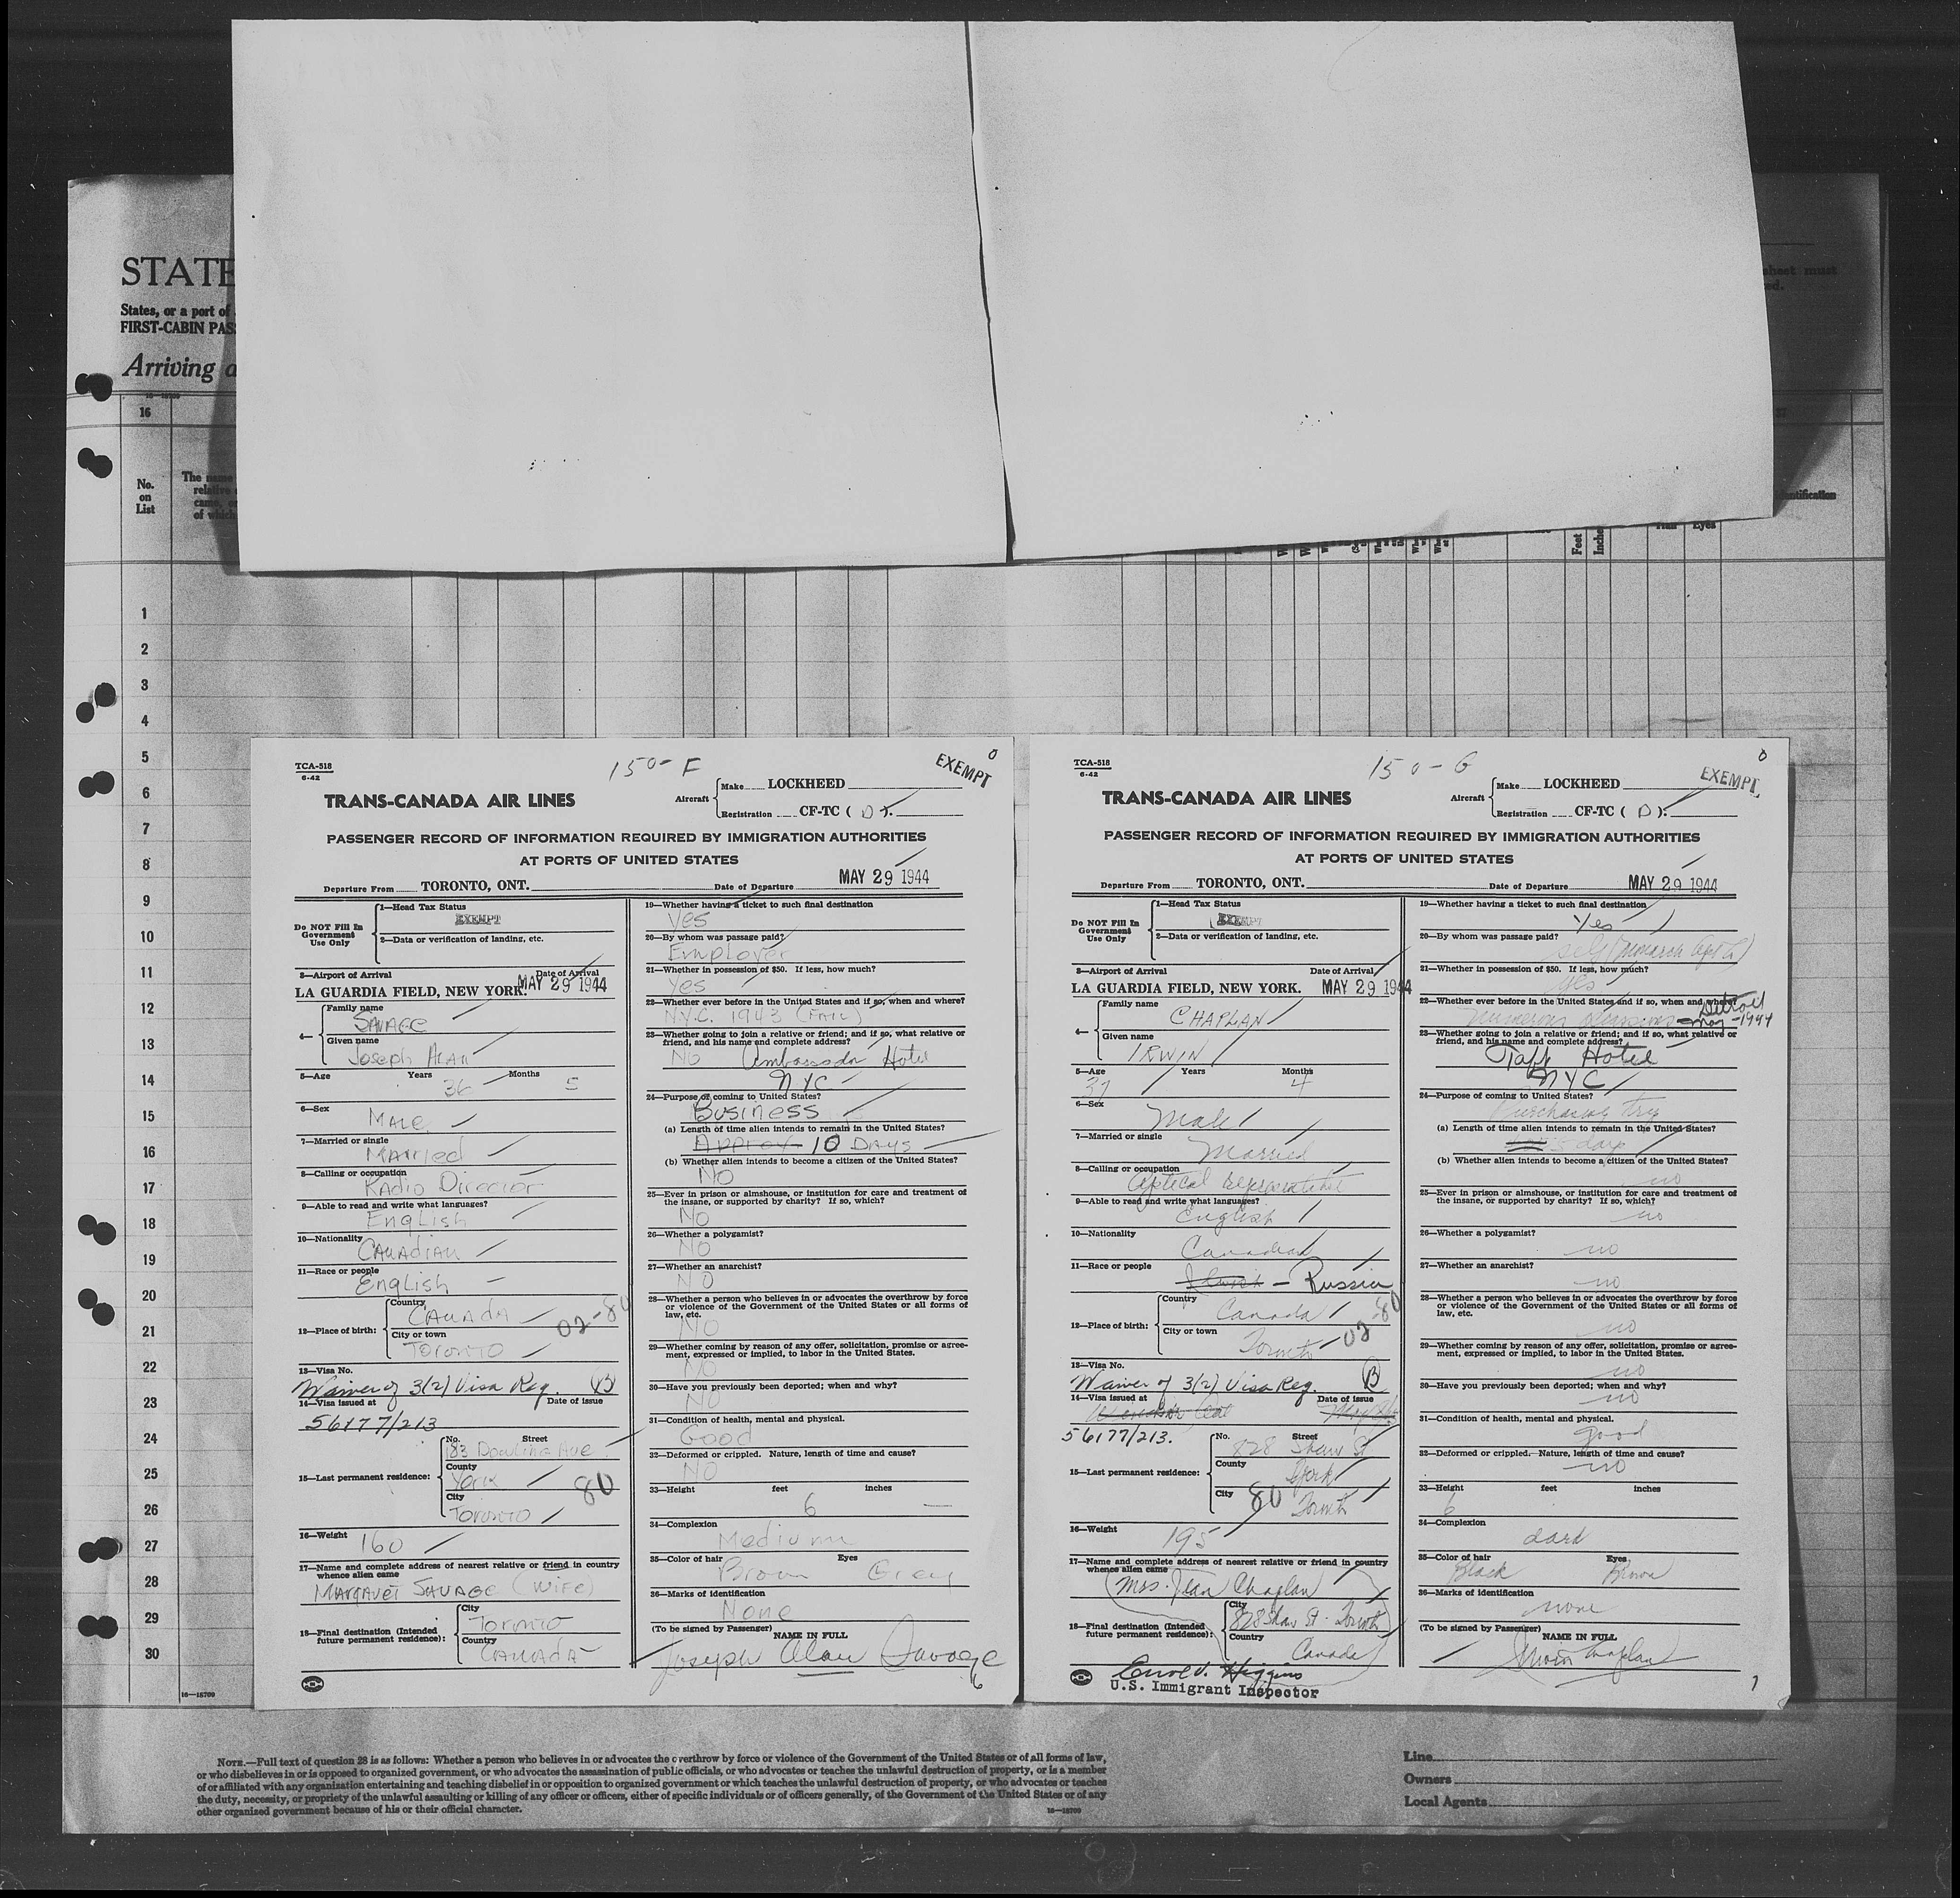 STATE
States, or a port of
FIRST-CABIN PAS
Arriving a
sheet must
16
No.
on
List
The name
relative
came, or
of which
Identification
Eyes
Feet
Inche
1
2
3
4
5
6
7
8
9
10
11
12
13
14
15
16
17
18
19
20
21
22
23
24
25
26
27
28
29
30
16—18709
TCA-518
6-42
150-F
EXEMPT
0
TRANS-CANADA AIR LINES
Aircraft
Make LOCKHEED
Registration CF-TC ( D ).
PASSENGER RECORD OF INFORMATION REQUIRED BY IMMIGRATION AUTHORITIES
AT PORTS OF UNITED STATES
Departure From TORONTO, ONT. Date of Departure MAY 29 1944
Do NOT Fill In
Government
Use Only
1—Head Tax Status
EXEMPT
2—Data or verification of landing, etc.
3—Airport of Arrival Date of Arrival
LA GUARDIA FIELD, NEW YORK. MAY 29 1944
4—
Family name
SAVAGE
Given name
Joseph Alan
5—Age Years Months
36 5
6—Sex
MALE
7—Married or single
MArried
8—Calling or occupation
RAdio Director
9—Able to read and write what languages?
English
10—Nationality
CANAdiAN
11—Race or people
English
12—Place of birth:
Country
CANADA
City or town
TORONTO
02-80
13—Visa No.
Waiver of 3(2) Visa Req. B
14—Visa issued at Date of issue
56177/213
15—Last permanent residence:
No. Street
183 Dowling Ave
County
York
City
Toronto
80
16—Weight
160
17—Name and complete address of nearest relative or friend in country
whence alien came
MARGARET SAVAGE (WIFE)
18—Final destination (Intended
future permanent residence):
City
Toronto
Country
CANADA
19—Whether having a ticket to such final destination
Yes
20—By whom was passage paid?
Employer
21—Whether in possession of $50. If less, how much?
Yes
22—Whether ever before in the United States and if so, when and where?
N.Y.C. 1943 (FALL)
23—Whether going to join a relative or friend; and if so, what relative or
friend, and his name and complete address?
NO Ambassador Hotel
NYC
24—Purpose of coming to United States?
Business
(a) Length of time alien intends to remain in the United States?
Approx. 10 DAYS
(b) Whether alien intends to become a citizen of the United States?
NO
25—Ever in prison or almshouse, or institution for care and treatment of
the insane, or supported by charity? If so, which?
NO
26—Whether a polygamist?
NO
27—Whether an anarchist?
NO
28—Whether a person who believes in or advocates the overthrow by force
or violence of the Government of the United States or all forms of
law, etc.
NO
29—Whether coming by reason of any offer, solicitation, promise or agree-
ment, expressed or implied, to labor in the United States.
NO
30—Have you previously been deported; when and why?
NO
31—Condition of health, mental and physical.
Good
32—Deformed or crippled. Nature, length of time and cause?
NO
33—Height feet inches
6 —
34—Complexion
Medium
35—Color of hair Eyes
Brown Grey
36—Marks of identification
None
(To be signed by Passenger)
NAME IN FULL
Joseph Alan Savage
6
TCA-518
6-42
150-G
EXEMPT
0
TRANS-CANADA AIR LINES
Aircraft
Make LOCKHEED
Registration CF-TC ( D ).
PASSENGER RECORD OF INFORMATION REQUIRED BY IMMIGRATION AUTHORITIES
AT PORTS OF UNITED STATES
Departure From TORONTO, ONT. Date of Departure MAY 29 1944
Do NOT Fill In
Government
Use Only
1—Head Tax Status
EXEMPT
2—Data or verification of landing, etc.
3—Airport of Arrival Date of Arrival
LA GUARDIA FIELD, NEW YORK. MAY 29 1944
4—
Family name
CHAPLAN
Given name
IRWIN
5—Age Years Months
37 4
6—Sex
Male
7—Married or single
Married
8—Calling or occupation
Optical Representative
9—Able to read and write what languages?
English
10—Nationality
Canadian
11—Race or people
Jewish — Russian
12—Place of birth:
Country
Canada
City or town
Toronto
02-80
13—Visa No.
Waiver of 3(2) Visa Req. B
14—Visa issued at Date of issue
56177/213.
15—Last permanent residence:
No. Street
828 Shaw St
County
York
City
80 Toronto
16—Weight
195
17—Name and complete address of nearest relative or friend in country
whence alien came
Mrs. Jean Chaplan
18—Final destination (Intended
future permanent residence):
City
828 Shaw St. Toronto
Country
Canada
Higgins
U.S. Immigrant Inspector
19—Whether having a ticket to such final destination
Yes
20—By whom was passage paid?
self
21—Whether in possession of $50. If less, how much?
yes
22—Whether ever before in the United States and if so, when and where?
numerous Detroit
May -1944
23—Whether going to join a relative or friend; and if so, what relative or
friend, and his name and complete address?
Taft Hotel
NYC
24—Purpose of coming to United States?
Purchasing trip
(a) Length of time alien intends to remain in the United States?
days
(b) Whether alien intends to become a citizen of the United States?
no
25—Ever in prison or almshouse, or institution for care and treatment of
the insane, or supported by charity? If so, which?
no
26—Whether a polygamist?
no
27—Whether an anarchist?
no
28—Whether a person who believes in or advocates the overthrow by force
or violence of the Government of the United States or all forms of
law, etc.
no
29—Whether coming by reason of any offer, solicitation, promise or agree-
ment, expressed or implied, to labor in the United States.
no
30—Have you previously been deported; when and why?
no
31—Condition of health, mental and physical.
good
32—Deformed or crippled. Nature, length of time and cause?
no
33—Height feet inches
6
34—Complexion
dark
35—Color of hair Eyes
Black Brown
36—Marks of identification
none
(To be signed by Passenger)
NAME IN FULL
Irwin Chaplan
7
NOTE.—Full text of question 28 is as follows: Whether a person who believes in or advocates the overthrow by force or violence of the Government of the United States or of all forms of law,
or who disbelieves in or is opposed to organized government, or who advocates the assassination of public officials, or who advocates or teaches the unlawful destruction of property, or is a member
of or affiliated with any organization entertaining and teaching disbelief in or opposition to organized government or which teaches the unlawful destruction of property, or who advocates or teaches
the duty, necessity, or propriety of the unlawful assaulting or killing of any officer or officers, either of specific individuals or of officers generally, of the Government of the United States or of any
other organized government because of his or their official character.
16—18709
Line
Owners
Local Agents